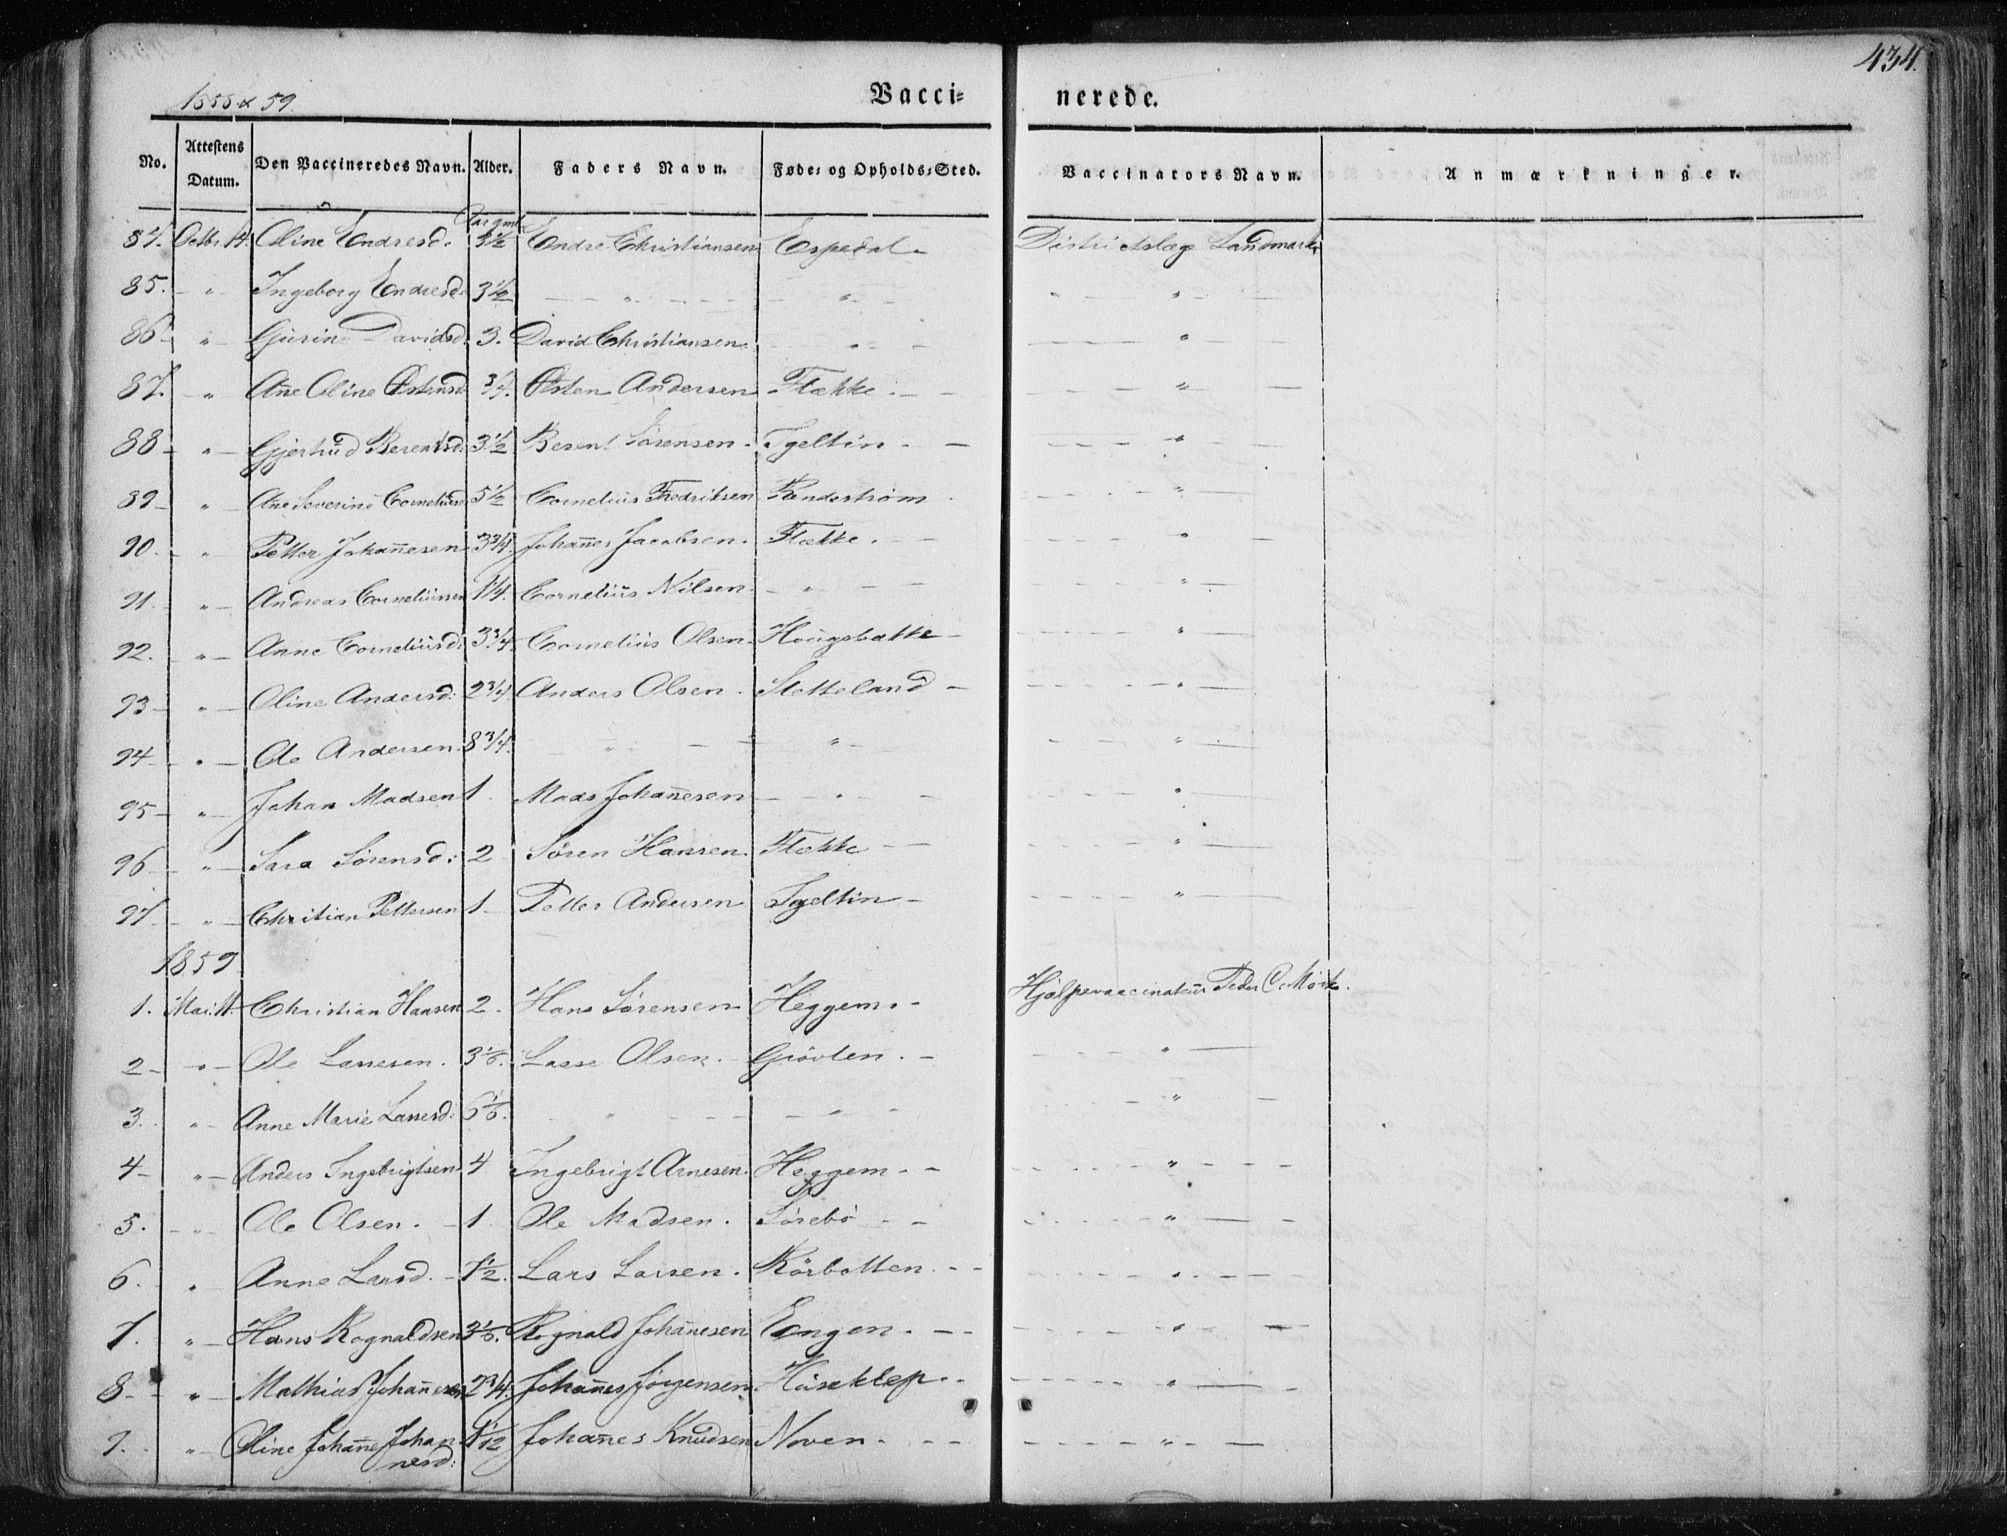 434.
1858 & 59.
Vacci= nerede.
No. Attestens Datum. Den Vaccineredes Navn. Alder. Faders Navn. Føde= og Opholds=Sted. Vaccinators Navn. Anmærkninger.
84. Octbr 14. Oline Endresd. Endre Christiansen Espedal Districtslæge Landmark
85. " Ingeborg Endresd. 3 1/2 " " "
86 " Gurine Davidsd. 3. David Christiansen " "
87. " Añe Oline Østensd 3/4. Østen Andersen Flække "
88 " Gjertrud Berentsd. 3 1/2 Berent Sørensen Tgeltin "
89 " Ane Severine Corneliusd 5 1/2 Cornelius Fredriksen "
90. " Petter Johañesen 3 3/4. Johañes Jacobsen. Flække. "
91. " Andreas Corneliussen 1/4. Cornelius Nilsen " "
92. " Anne Corneliusd: 3 3/4. Cornelius Olsen. Hougsbakke "
93 " Oline Andersd: 2 3/4. Anders Olsen. Sletteland "
94 " Ole Andersen. 8 3/4. " " "
95 " Johan Madsen 1. Mads Johañesen " "
96 " Sara Sørensd: 2 Sören Hansen. Flække "
97 " Christian Pettersen 1. Petter Andersen Tgeltin "
1859
1. Mai 11. Christian Hansen 2. Hans Sørensen Heggem. Hjælpevaccinateur Peder C. Mørk.
2 " Ole Lassesen. 3 1/6. Lasse Olsen. Grövlen. "
3. " Anne Marie Lassesd: 6 1/6. " " "
4 " Anders Ingebrigtsen 4 Ingebrigt Arnesen. Heggem "
5. " Ole Olsen. 1. Ole Madsen. Sörebö "
6. " Anne Larsd. 1 1/2. Lars Larsen. Körbotten. "
7. " Hans Rognaldsen 3 1/6. Rognald Johañesen Engen. "
8 " Mathias Johañesen 2 3/4. Johañes Jörgensen. Huseklep. "
9. " Oline Johañe Johannesd: 1 1/12 Johañes Knudsen Noven. "